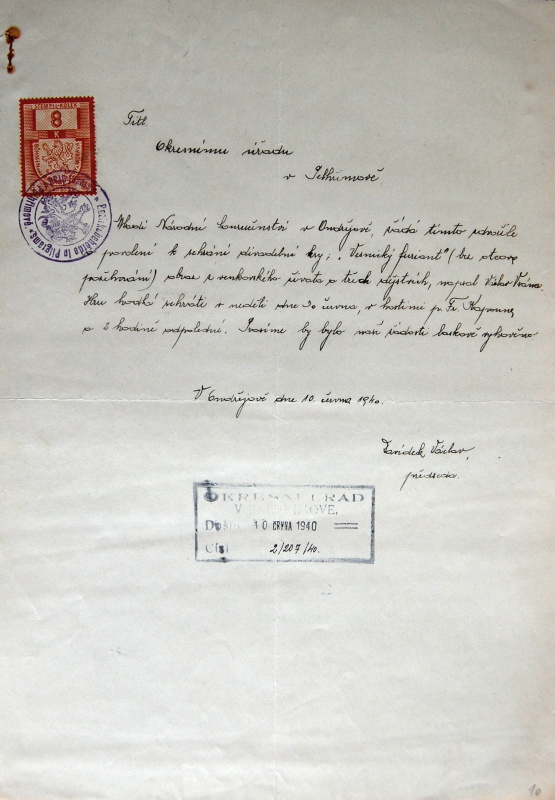 STEMPEL-KOLEK
8
K
Titl.
Okresnímu úřadu
v Pelhřimově
Mladí Národní souručenství v Ondřejově, žádá tímto zdvořile
povolení k sehrání divadelní hry; „Vesnický furiant“ (bez otcova
požehnání) obraz z venkovského života o třech dějstvích, napsal Václav Vrána.
Hru hodlá sehráti v neděli dne 30 června, v hostinci p. Fr. Kaprouna
o 3 hodině odpolední. Prosíme by bylo naší žádosti laskavě vyhověno
V Ondřejově dne 10. června 1940.
Václav,
předseda.
OKRESNÍ ÚŘAD
V PELHŘIMOVĚ.
Došlo 10 ČRVNA 1940
Čís. 2/207/40.
10